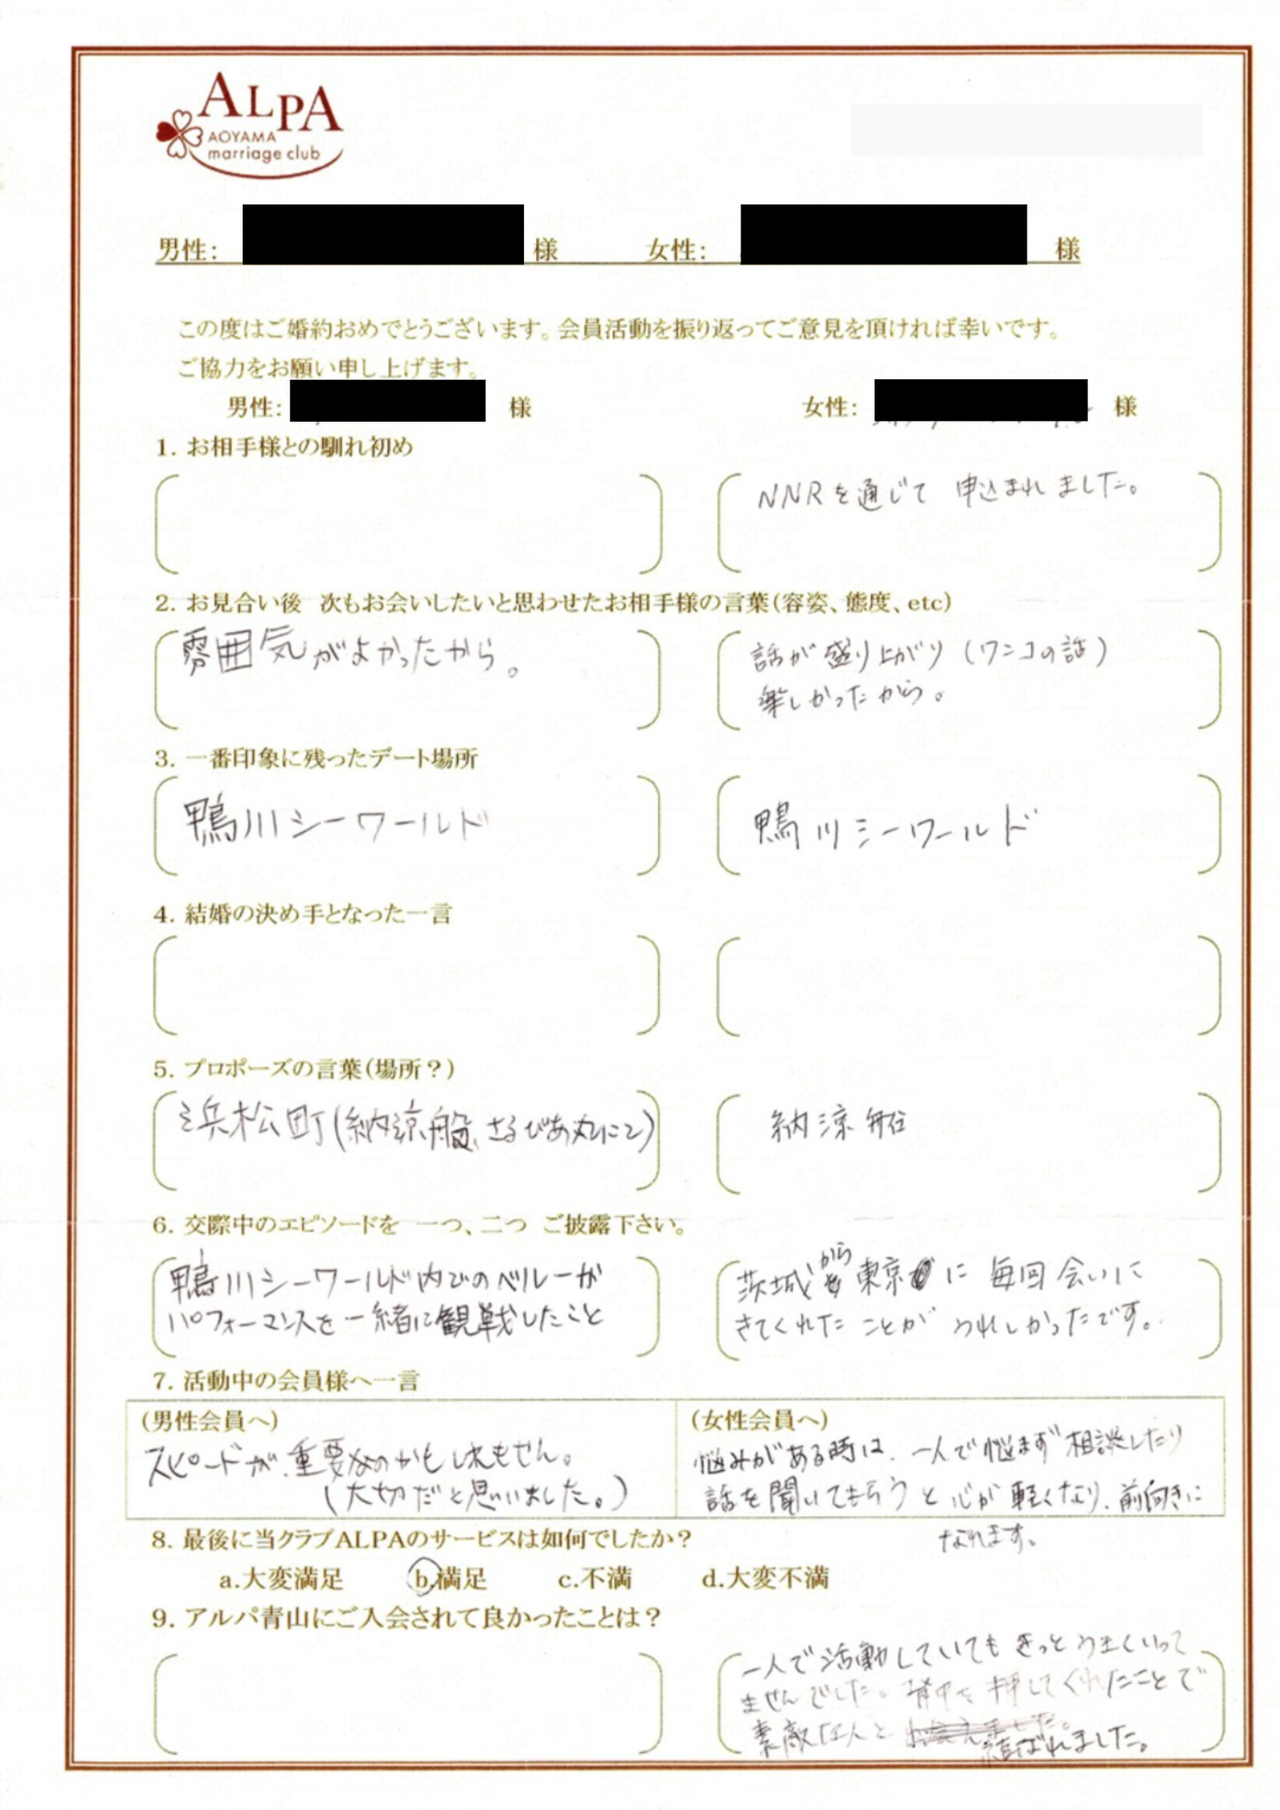 ALPA
AOYAMA
marriage club
男性： 様 女性： 様
この度はご婚約おめでとうございます。会員活動を振り返ってご意見を頂ければ幸いです。
ご協力をお願い申し上げます。
男性： 様 女性： 様
1. お相手様との馴れ初め
NNRを通じて 申込まれました。
2. お見合い後 次もお会いしたいと思わせたお相手様の言葉（容姿、態度、etc）
雰囲気がよかったから。
話が盛り上がり（ワンコの話）
楽しかったから。
3. 一番印象に残ったデート場所
鴨川シーワールド
鴨川シーワールド
4. 結婚の決め手となった一言
5. プロポーズの言葉（場所？）
浜松町（納涼船、さるびあ丸にて）
納涼船
6. 交際中のエピソードを 一つ、二つ ご披露下さい。
鴨川シーワールド内でのベルーガ
パフォーマンスを一緒に観戦したこと
茨城から東京に 毎回会いに
きてくれたことが うれしかったです。
7. 活動中の会員様へ一言
（男性会員へ）
スピードが重要なのかもしれません。
（大切だと思いました。）
（女性会員へ）
悩みがある時は、一人で悩まず相談したり
話を聞いてもらうと心が軽くなり、前向きに
なれます。
8. 最後に当クラブALPAのサービスは如何でしたか？
a.大変満足 b.満足 c.不満 d.大変不満
9. アルパ青山にご入会されて良かったことは？
一人で活動していてもきっとうまくいって
ませんでした。背中を押してくれたことで
素敵な人と結ばれました。